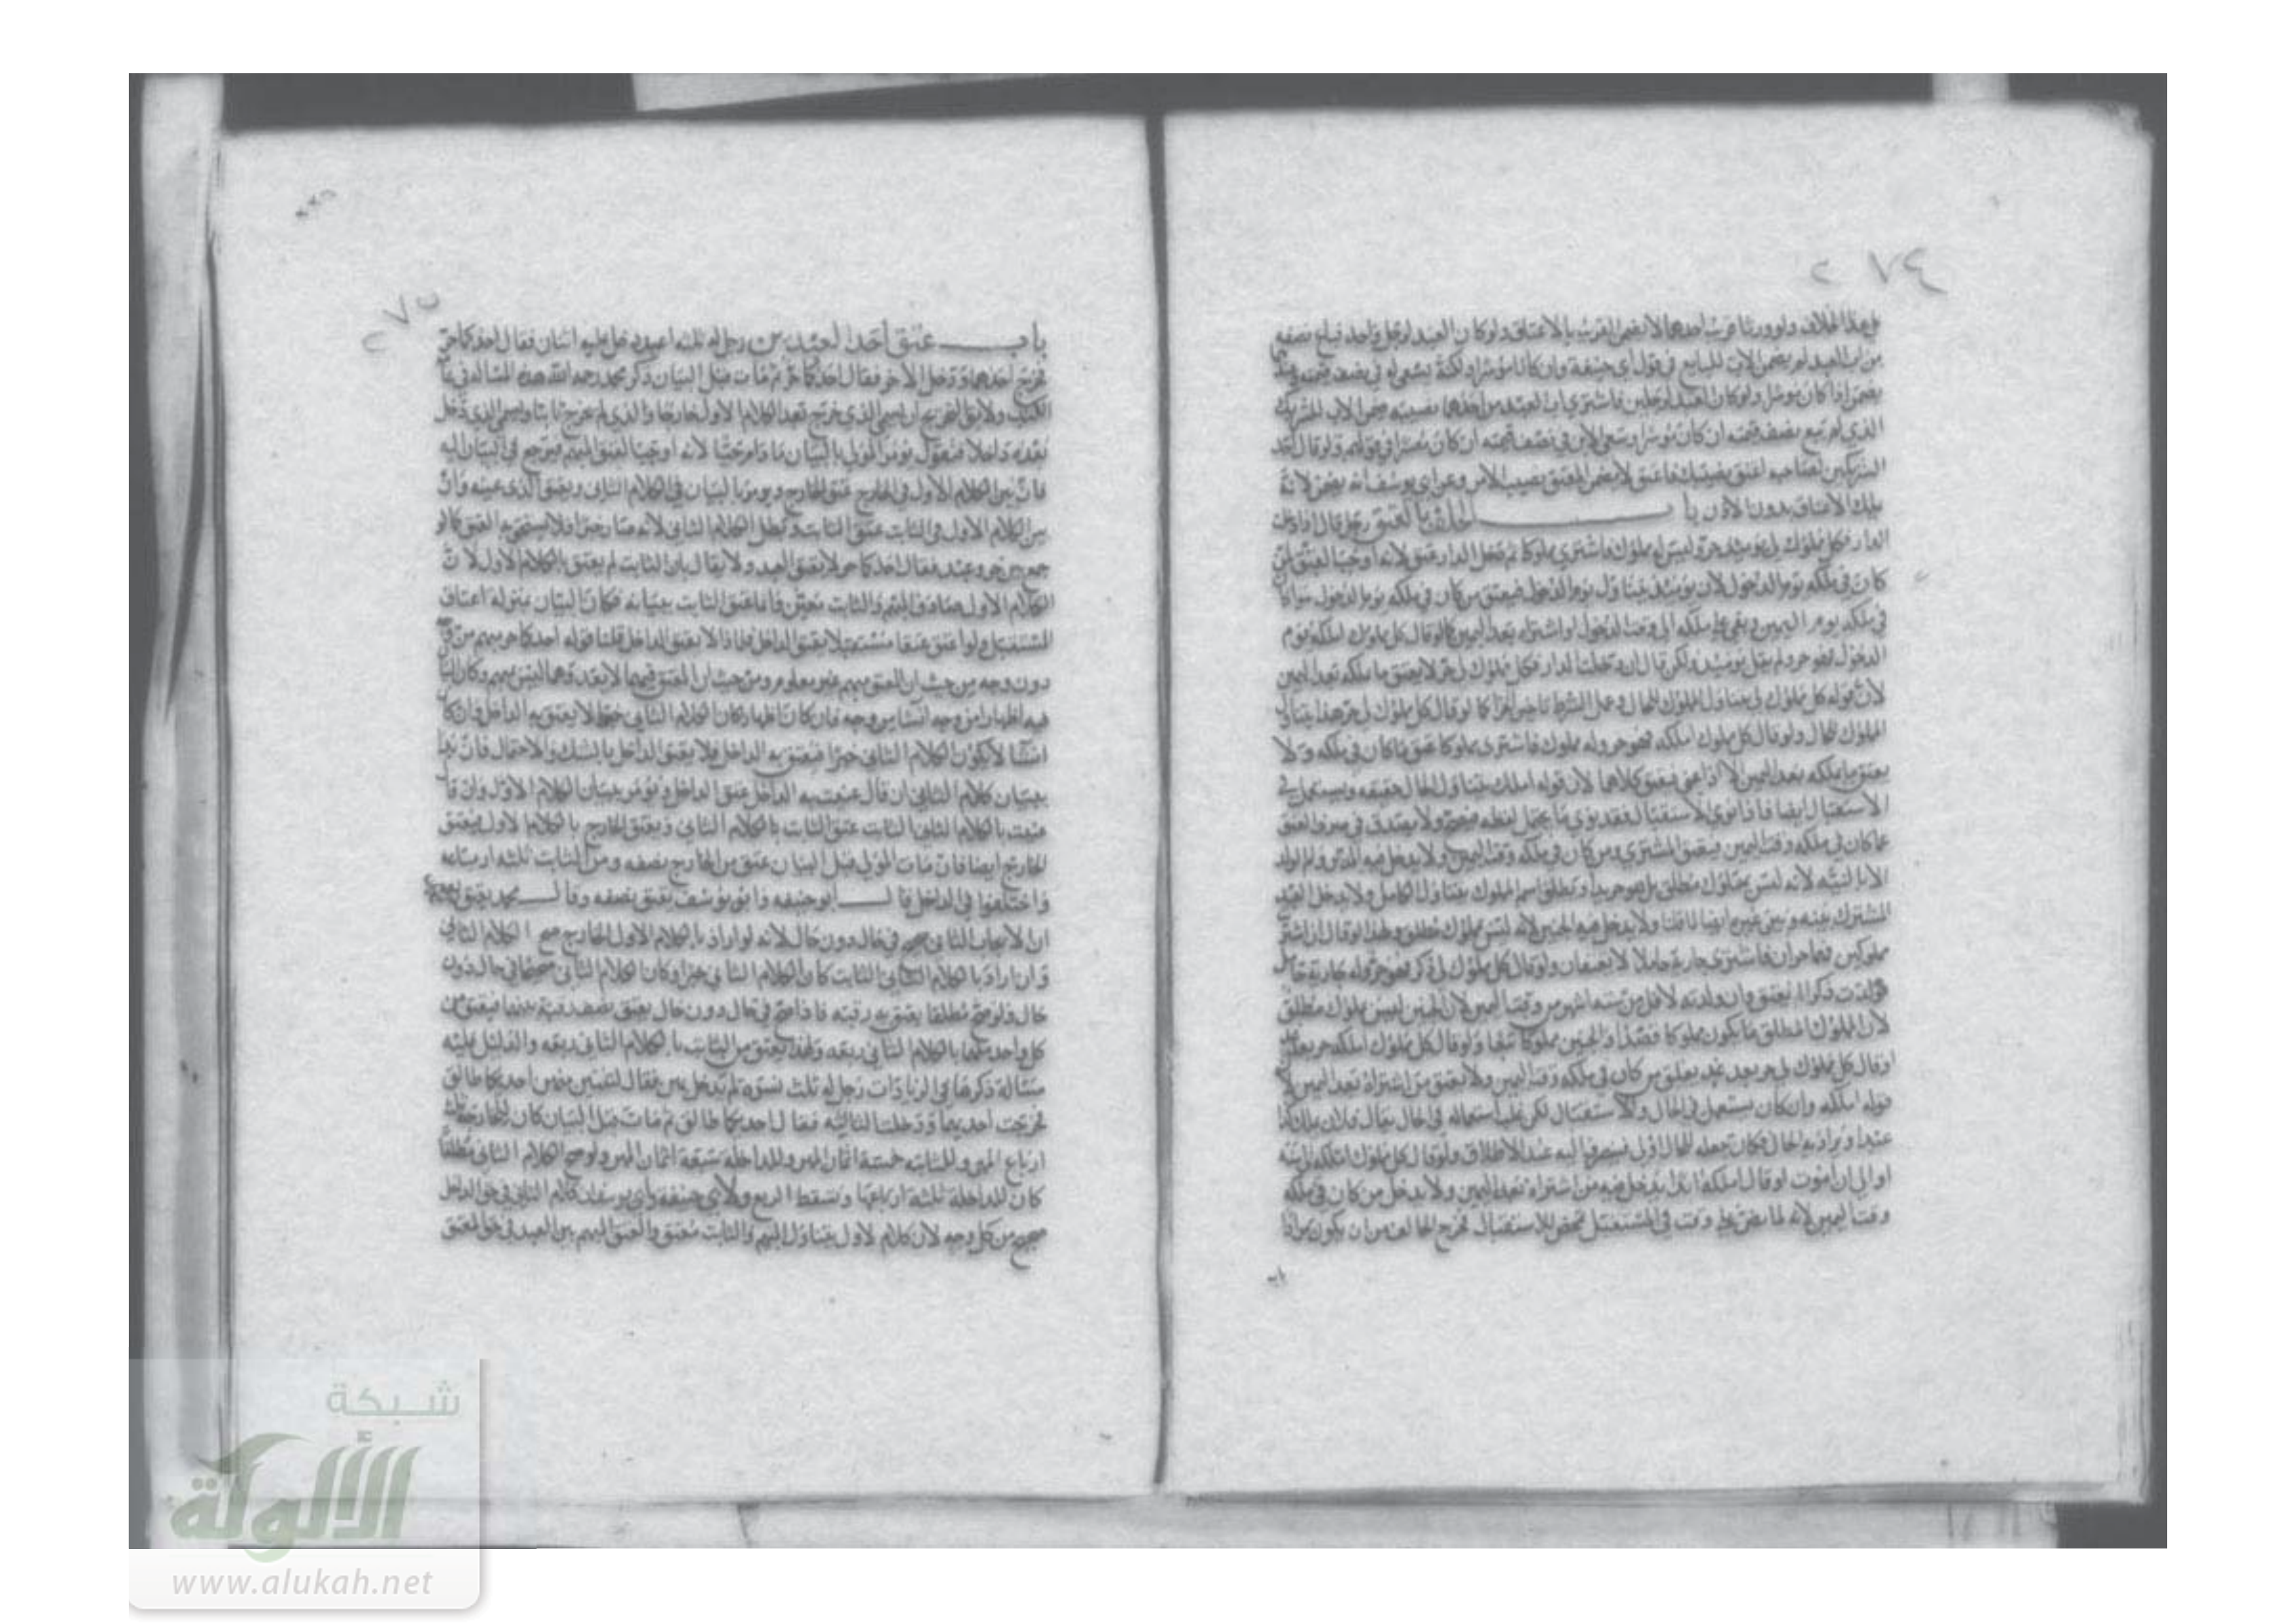 ٢٧٤
على هذا الخلاف ولو ورثا قريب احدهما لا يضمن القريب بالاعتاق ولو كان العبد لرجل واحد فباع نصفه
من اب العبد لم يضمن الاب للبايع في قول ابي حنيفة وان كان موسرا ولكنه يسعى له في نصف قيمته
يضمن اذا كان موسرا ولو كان العبد لرجلين فاشترى اب العبد من احدهما نصيبه ضمن الاب الشريك
الذي لم يبع نصف قيمته ان كان موسرا وسعى الابن في نصف قيمته ان كان معسرا في قولهم ولو قال احد
الشريكين لصاحبه اعتق نصيبك فاعتق لا يضمن المعتق نصيب الامر وعن ابي يوسف انه يضمن لانه
يملك الاعتاق بدون الاذن باب الحلف بالعتق رجل قال اذا دخلت
الدار فكل مملوك لي يومئذ حر وليس له مملوك فاشترى مملوكا ثم دخل الدار عتق لانه اوجب العتق لمن
كان في ملكه يوم الدخول لان يومئذ يتناول يوم الدخول فيعتق من كان في ملكه يوم الدخول سواء كان
في ملكه يوم اليمين وبقي على ملكه الى وقت الدخول او اشتراه بعد اليمين كما لو قال كل مملوك املكه يوم
الدخول فهو حر ولو لم يقل يومئذ ولكن قال ان دخلت الدار فكل مملوك لي حر لا يعتق ما ملكه بعد اليمين
لان قوله كل مملوك لي يتناول المملوك للحال وعمل الشرط تاخير الجزا كما لو قال كل مملوك لي حر هذا يتناول
المملوك للحال ولو قال كل مملوك املكه فهو حر وله مملوك فاشترى مملوكا عتق ما كان في ملكه ولا
يعتق ما يملكه بعد اليمين الا اذا عنى فيعتق كلاهما لان قوله املك يتناول الحال حقيقه ويستعمل في
الاستقبال ايضا فاذا نوى الاستقبال فقد نوى ما يحتمل لفظه فصح ولا يصدق في صرف العتق
عما كان في ملكه وقت اليمين فيعتق المشترى ومن كان في ملكه وقت اليمين ولا يدخل فيه المكاتب
الا بالنيه لانه ليس بمملوك مطلق بل هو حر يدا ومطلق اسم المملوك يتناول الكامل ولا يدخل العبد
المشترك بينه وبين غيره ايضا لما قلنا ولا يدخل فيه الجنين لانه ليس بمملوك مطلق ولهذا لو قال ان اشتريت
مملوكين فهما حران فاشترى جارية حاملا لا يعتقان ولو قال كل مملوك لي ذكر فهو حر وله جارية حامل
فولدت ذكرا لم يعتق وان ولدته لاقل من ستة اشهر من وقت اليمين لان الجنين ليس بمملوك مطلق
لان المملوك المطلق ما يكون مملوكا قصدا والجنين مملوكا تبعا ولو قال كل مملوك املكه حر بعد غد
او قال كل مملوك لي حر بعد غد يعتق من كان في ملكه وقت اليمين ولا يعتق من اشتراه بعد اليمين لان
قوله املكه وان كان يستعمل في الحال والاستقبال لكن غلب استعماله في الحال يقال فلان يملك كذا
عبدا ويراد به الحال فكان جعله للحال اولى فينصرف اليه عند الاطلاق ولو قال كل مملوك املكه الى سنة
او الى ان اموت او قال املكه ابدا يدخل فيه من اشتراه بعد اليمين ولا يدخل من كان في ملكه
وقت اليمين لانه لما نص على وقت في المستقبل تمحض للاستقبال فخرج الحال من ان يكون مرادا
باب
٢٧٥
باب عتق احد العبيد من رجل له ثلثه اعبد دخل عليه اثنان فقال احدكما حر
فخرج احدهما ودخل الاخر فقال احدكما حر ثم مات قبل البيان ذكر محمد رحمه الله هذه المسالة في
الكتب ولا بد للتخريج ان يسمى الذي خرج بعد الكلام الاول خارجا والذي لم يخرج ثابتا ويسمى الذي دخل
بعده داخلا فنقول يؤمر المولى بالبيان ما دام حيا لانه اوجب العتق المبهم فيرجع في البيان اليه
فان بين الكلام الاول في الخارج عتق الخارج ويومر بالبيان في الكلام الثاني ويعتق الذي عينه وان
بين الكلام الاول في الثابت عتق الثابت وبطل الكلام الثاني لانه صار خبرا ولا يستحق به العتق كما لو
جمع بين حر وعبد فقال احدكما حر لا يعتق العبد ولا يقال بان الثابت لم يعتق بالكلام الاول لان
الكلام الاول صادف المبهم والثابت معين وانما عتق الثابت ببيانه فكان البيان بمنزلة اعتاق
المستقبل ولو اعتق عتقا مستقبلا يعتق الداخل فلماذا لا يعتق الداخل قلنا قوله احدكما حر مبهم من وجه
دون وجه من حيث ان المعتق مبهم غير معلوم ومن حيث ان العتق فيهما لا يعدوهما ليس بمبهم وكان البيان
فيه اظهارا من وجه انشا من وجه فان كان اظهارا كان الكلام الثاني خبرا لا يعتق به الداخل وان كان
انشا لا يكون الكلام الثاني خبرا فيعتق به الداخل فلا يعتق الداخل بالشك والاحتمال فان بدا
ببيان كلام الثاني ان قال عنيت به الداخل عتق الداخل ويؤمر ببيان الكلام الاول وان قال
عنيت بالكلام الثاني الثابت عتق الثابت بالكلام الثاني ويعتق الخارج بالكلام الاول فيعتق
الخارج ايضا فان مات المولى قبل البيان عتق من الخارج نصفه ومن الثابت ثلثه ارباعه
واختلفوا في الداخل قال ابو حنيفه وابو يوسف يعتق نصفه وقال محمد يعتق ربعه
ان الايجاب الثاني صح في حال دون حال لانه لو اراد بالكلام الاول الخارج صح الكلام الثاني
وان اراد بالكلام الثابت كان الكلام الثاني خبرا وكان الكلام الثاني صحيحا في حال دون
حال ولو صح مطلقا يعتق به رقبته فاذا صح في حال دون حال يعتق نصف رقبته بينهما فيعتق من
كل واحد منهما بالكلام الثاني ربعه ولهذا يعتق من الثابت بالكلام الثاني ربعه والدليل عليه
مسالة ذكرها في الزيادات رجل له ثلث نسوة لم يدخل بهن فقال لثنتين منهن احديكما طالق
فخرجت احديهما ودخلت الثالثه فقال احديكما طالق ثم مات قبل البيان كان للخارجة ثلثه
ارباع المهر وللثابته خمسة اثمان المهر وللداخلة سبعة اثمان المهر ولو صح الكلام الثاني مطلقا
كان للداخلة ثلثة ارباعها وسقط الربع ولابي حنيفه وابي يوسف ان كلام الثاني في حق الداخل
صحيح من كل وجه لان كلام الاول يتناول المبهم والثابت معتق والعتق المبهم بين العبيد في حق المعتق
شبكة
الألوكة
www.alukah.net